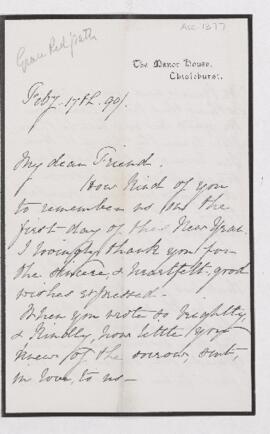 Acc. 1377
Grace Redpath
The Manor House,
Chislehurst.
Feby. 17th. 90/.
My dear Friend.
How kind of you
to remember us on the
first day of this New Year.
I lovingly thank you for
the sincere, & heartfelt good
wishes expressed -
When you wrote so brightly
& kindly, how little you
knew of the sorrow, sent,
in love, to us -